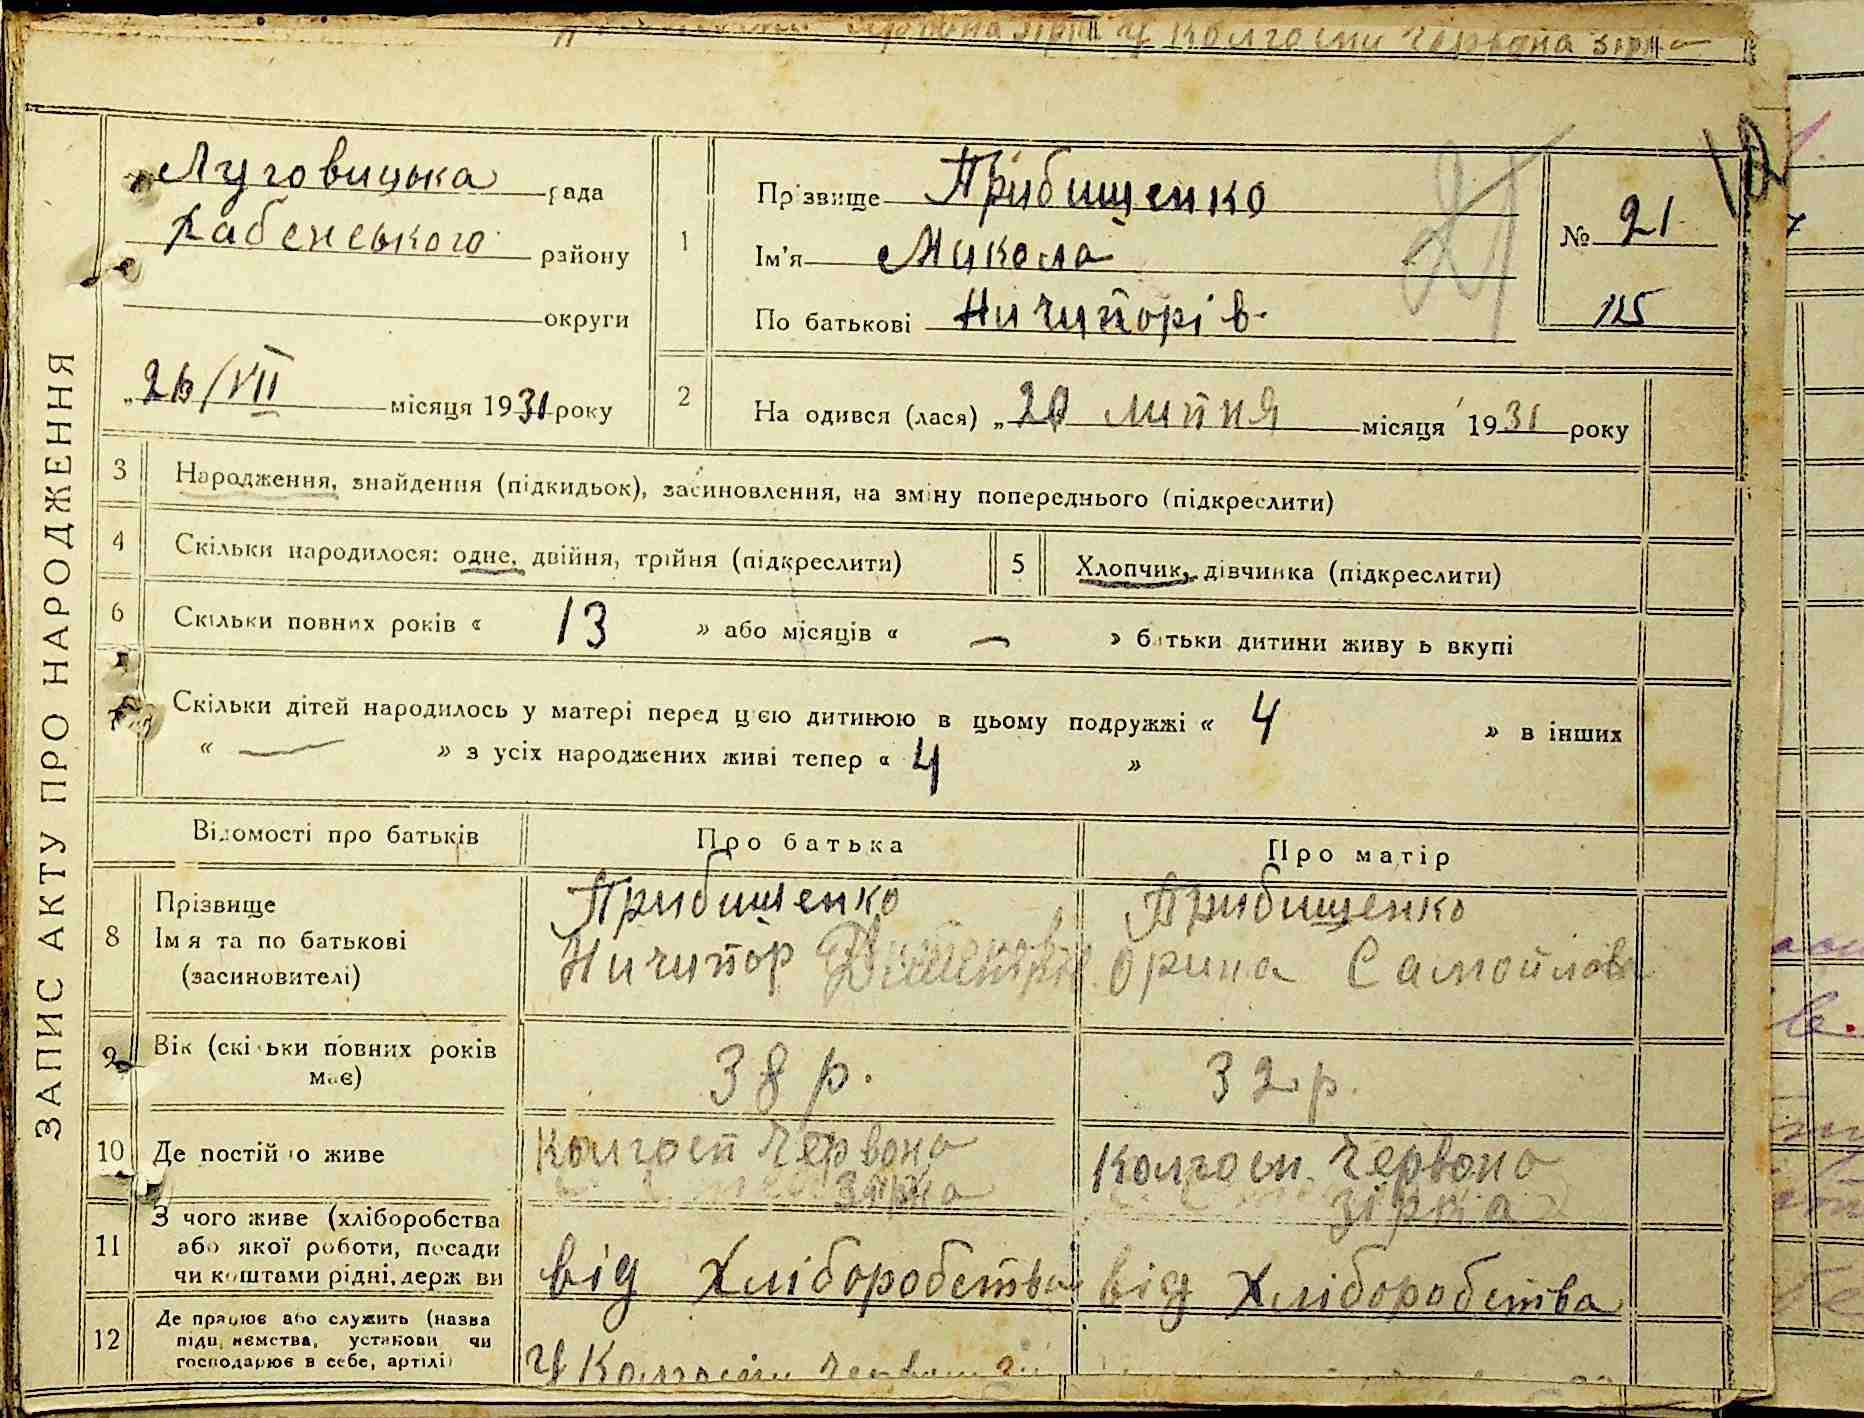 Колгоспи Червона зірка
ЗАПИС АКТУ ПРО НАРОДЖЕННЯ
Луговицька рада
Хабенського району
округи
„26/VII місяця 1931 року
1
Прізвище Прибищенко
Ім'я Микола
По батькові Ничипорів
№ 21
115
21
2
На одився (лася) „20 липня місяця 1931 року
3
Народження, знайдення (підкидьок), засиновлення, на зміну попереднього (підкреслити)
4
Скільки народилося: одне, двійня, трійня (підкреслити)
5
Хлопчик, дівчинка (підкреслити)
6
Скільки повних років « 13 » або місяців « — » батьки дитини живуть вкупі
Скільки дітей народилось у матері перед цією дитиною в цьому подружжі « 4 » в інших
« — » з усіх народжених живі тепер « 4 »
Відомості про батьків
Про батька
Про матір
8
Прізвище
Ім я та по батькові
(засиновителі)
Прибищенко
Ничипор
Прибищенко
Орина Самойлова
9
Вік (скільки повних років
має)
38 р.
32 р.
10
Де постійно живе
Колгосп Червона
зірка
Колгосп. Червона
зірка
11
З чого живе (хліборобства
або якої роботи, посади
чи коштами рідні, держ ви
від Хліборобства
від Хліборобства
12
Де працює або служить (назва
підприємства, установи чи
господарює в себе, артілі)
У Колгоспи Червона